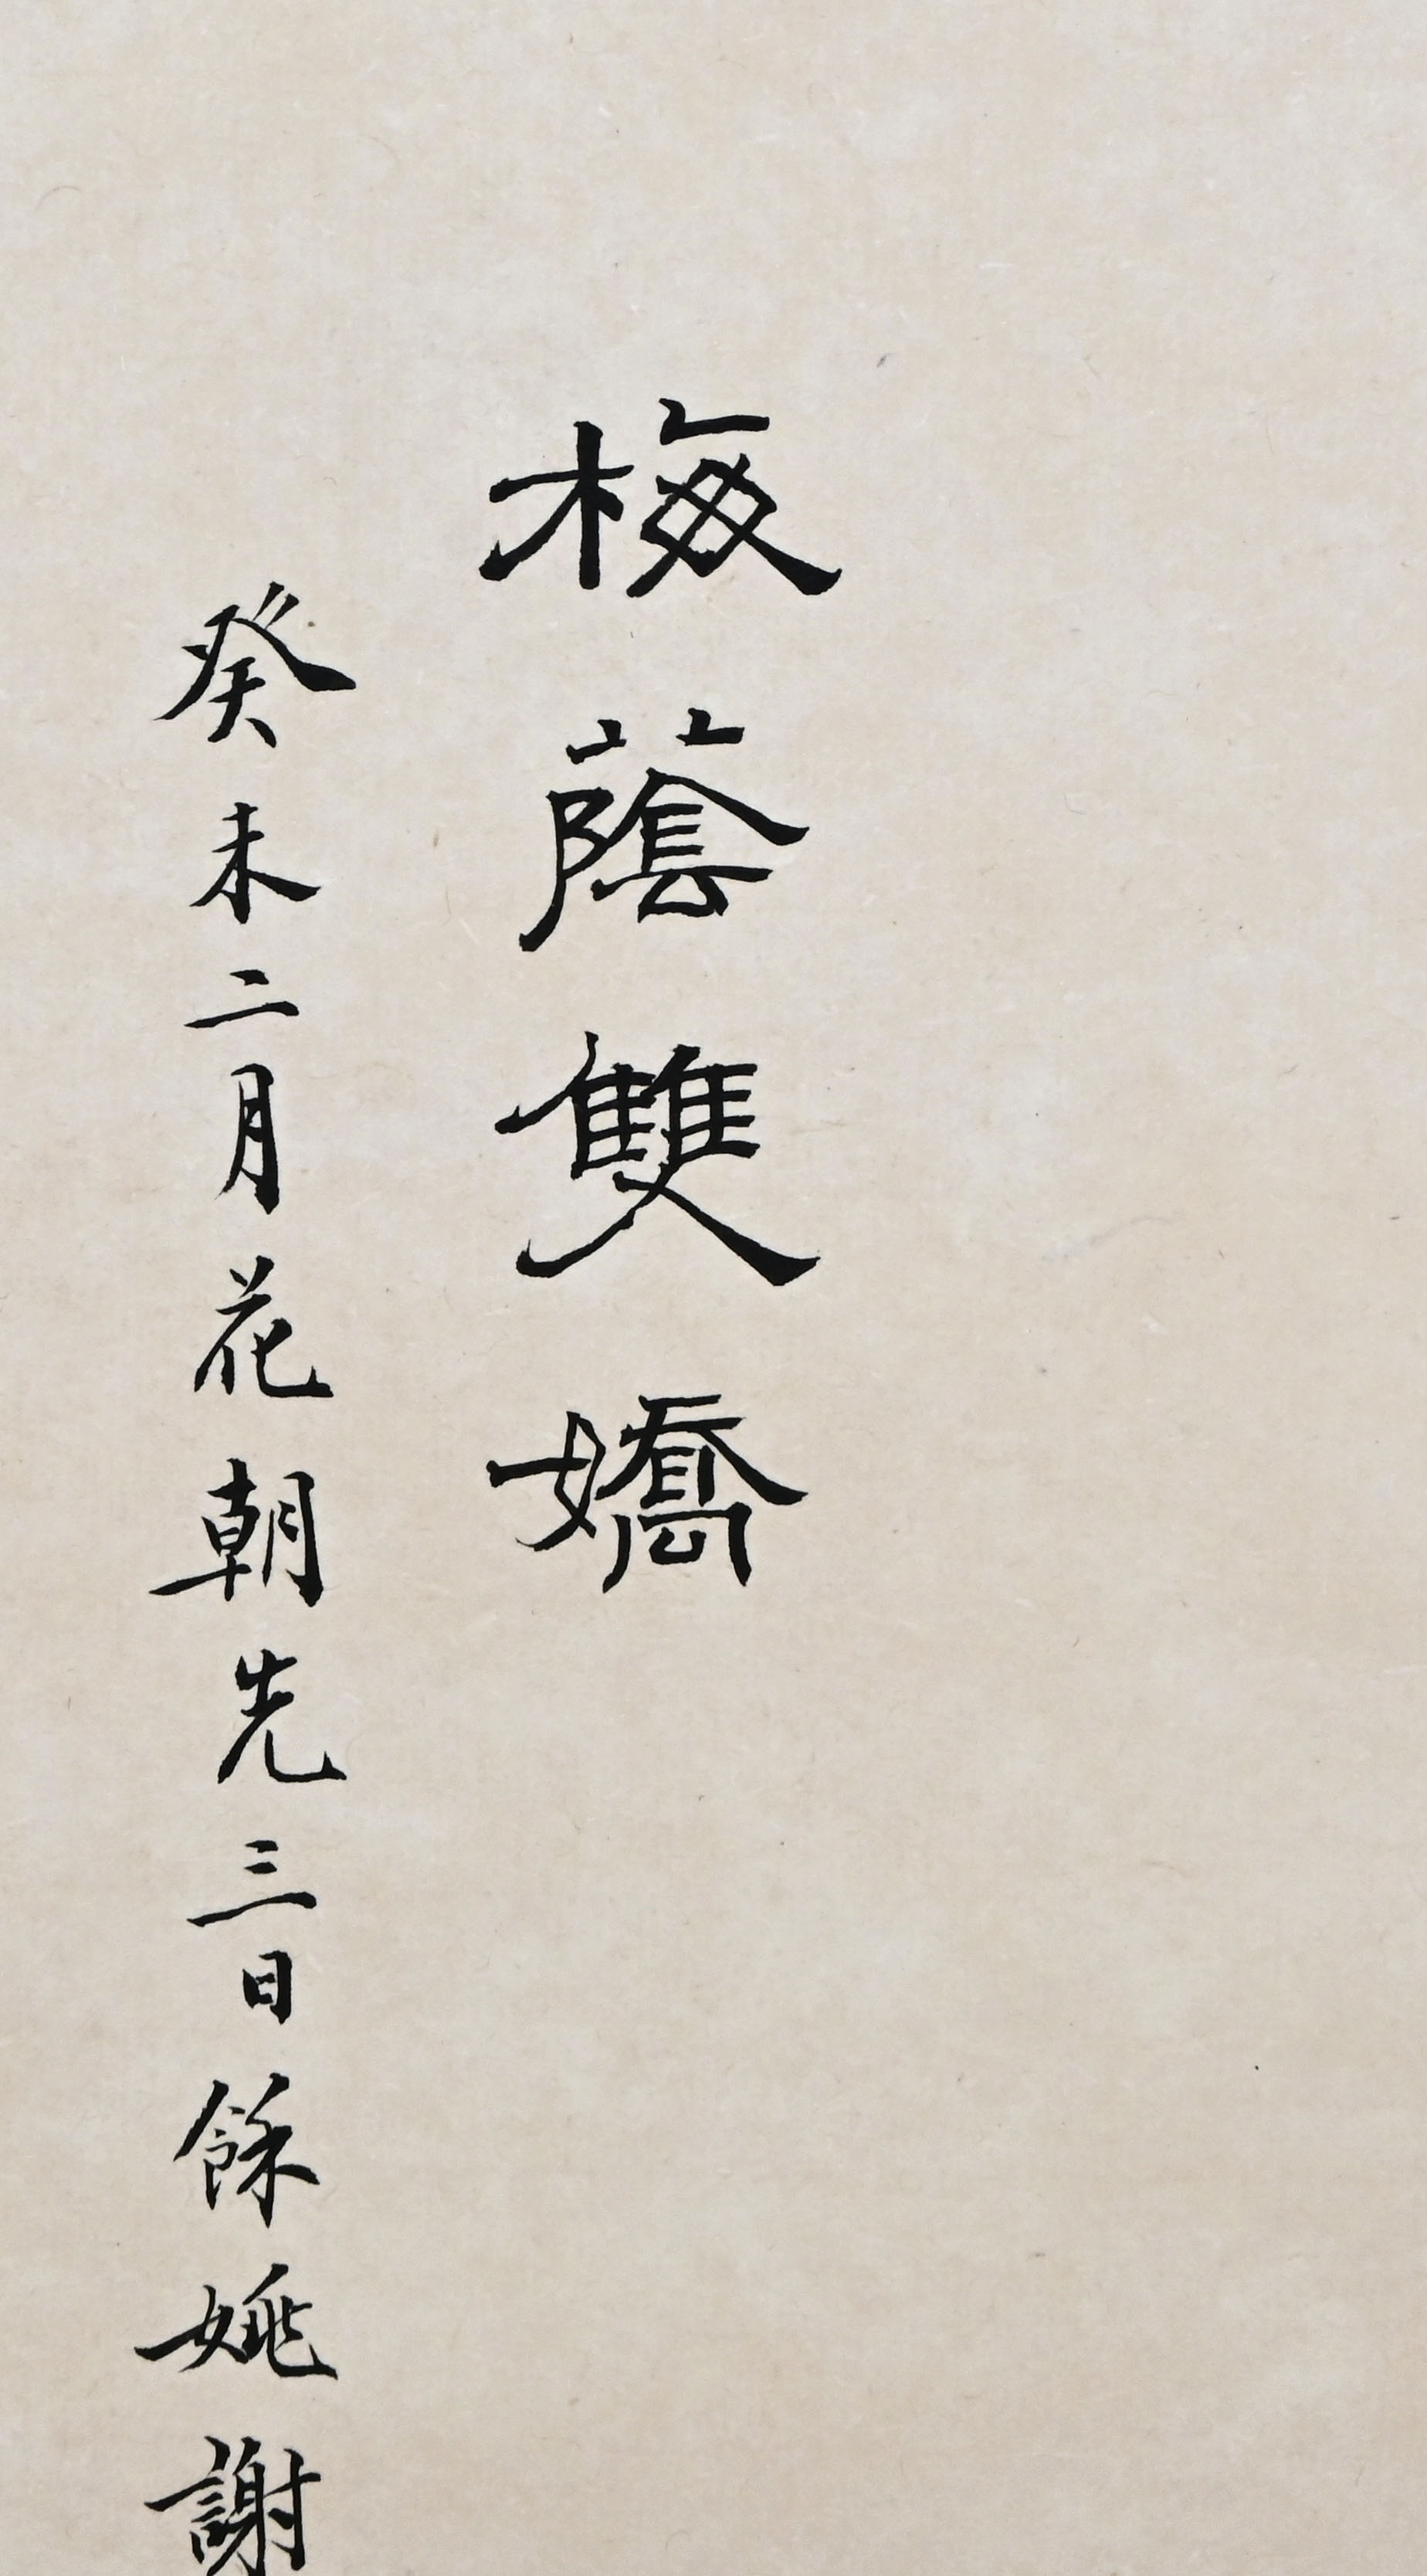 梅蔭雙嬌
癸未二月花朝先三日餘姚謝